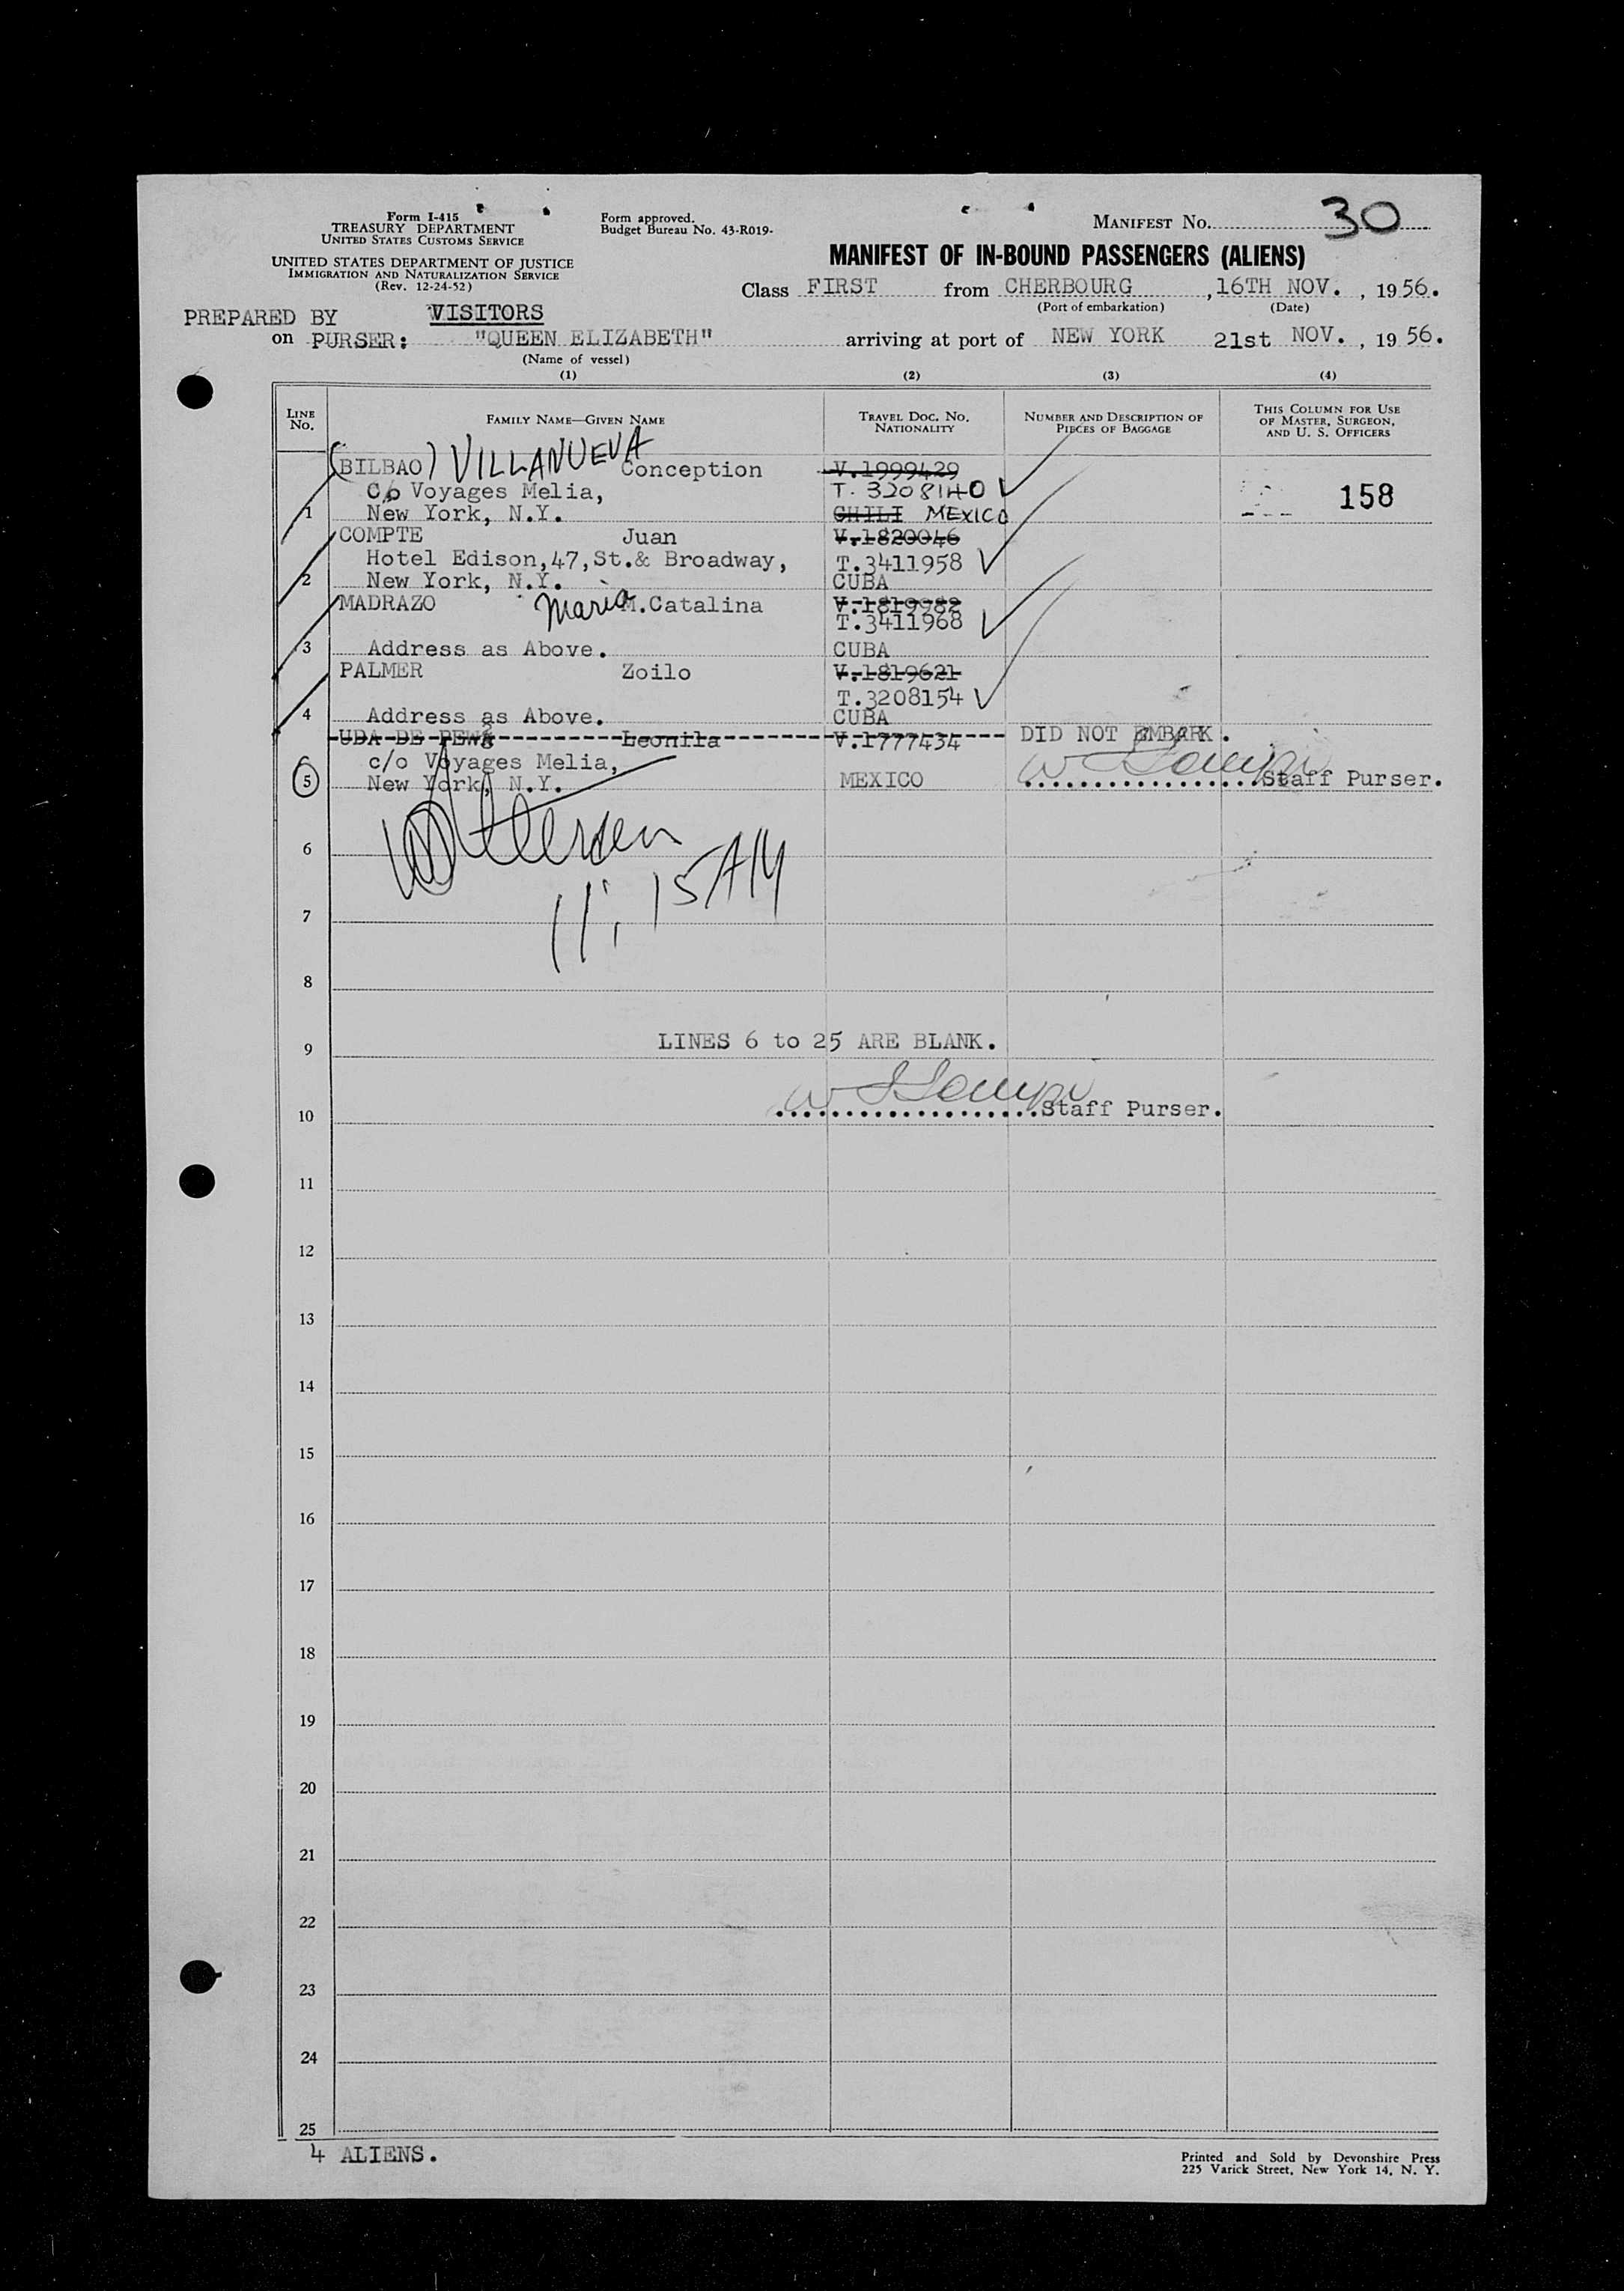 Form I-415
TREASURY DEPARTMENT
UNITED STATES CUSTOMS SERVICE
UNITED STATES DEPARTMENT OF JUSTICE
IMMIGRATION AND NATURALIZATION SERVICE
(Rev. 12-24-52)
Form approved.
Budget Bureau No. 43-R019-
MANIFEST No. 30
MANIFEST OF IN-BOUND PASSENGERS (ALIENS)
Class FIRST from CHERBOURG, 16TH NOV., 1956.
(Port of embarkation) (Date)
PREPARED BY VISITORS
on PURSER: "QUEEN ELIZABETH" arriving at port of NEW YORK 21st NOV., 1956.
(Name of vessel)
(1) (2) (3) (4)
LINE No. FAMILY NAME—GIVEN NAME TRAVEL DOC. NO. NATIONALITY NUMBER AND DESCRIPTION OF PIECES OF BAGGAGE THIS COLUMN FOR USE OF MASTER, SURGEON, AND U. S. OFFICERS
(BILBAO) VILLANUEVA Conception V.1999429
C/o Voyages Melia, T. 3208140 158
1 New York, N.Y. CHILI MEXICO
COMPTE Juan V.1820046
Hotel Edison,47,St.& Broadway, T.3411958
2 New York, N.Y. CUBA
MADRAZO Maria M.Catalina V.1819982
T.3411968
3 Address as Above. CUBA
PALMER Zoilo V.1819621
T.3208154
4 Address as Above. CUBA
UDA DE Leonila V.1777434 DID NOT EMBARK.
c/o Voyages Melia,
5 New York, N.Y. MEXICO Staff Purser.
6
11:15AM
7
8
LINES 6 to 25 ARE BLANK.
9
Staff Purser.
10
11
12
13
14
15
16
17
18
19
20
21
22
23
24
25
4 ALIENS.
Printed and Sold by Devonshire Press
225 Varick Street, New York 14, N. Y.